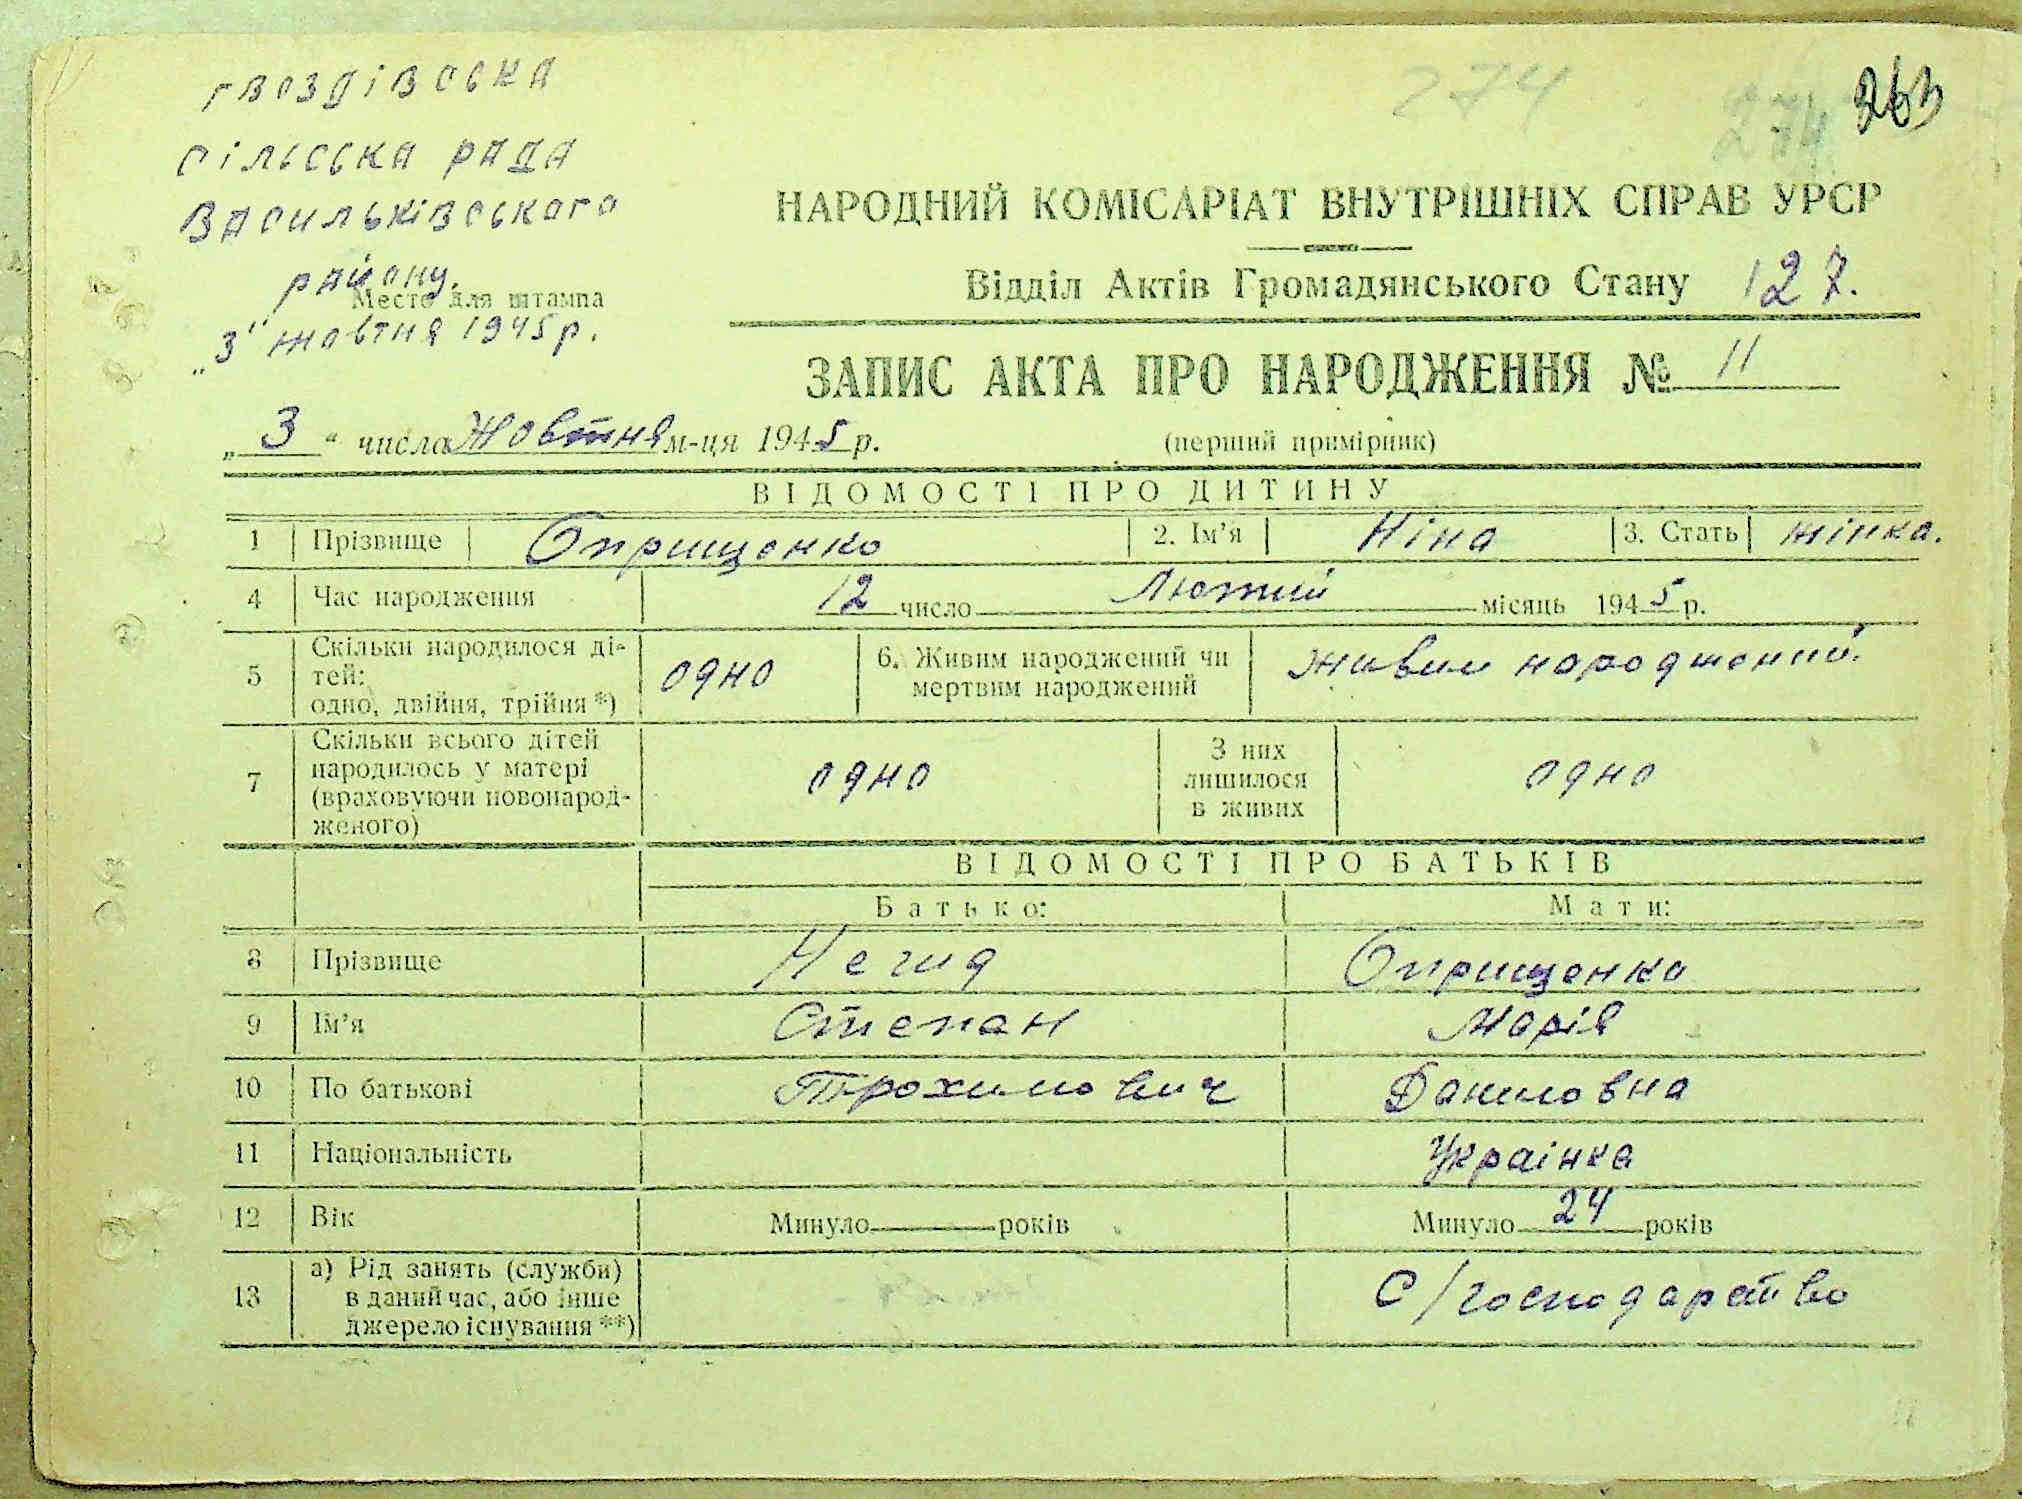 274
274 263
Гвоздівська
сільська рада
Васильківського
району.
Место для штампа
„3" жовтня 1945 р.
НАРОДНИЙ КОМІСАРІАТ ВНУТРІШНІХ СПРАВ УРСР
Відділ Актів Громадянського Стану 127.
ЗАПИС АКТА ПРО НАРОДЖЕННЯ № 11
„3“ числа Жовтня м-ця 1945 р. (перший примірник)
ВІДОМОСТІ ПРО ДИТИНУ
1 Прізвище Оприщенко 2. Ім’я Ніна 3. Стать жінка.
4 Час народження 12 число Лютий місяць 1945 р.
5 Скільки народилося ді-
тей:
одно, двійня, трійня *) одно 6. Живим народжений чи
мертвим народжений живим народжений.
7 Скільки всього дітей
народилось у матері
(враховуючи новонарод-
женого) одно З них
лишилося
в живих одно
ВІДОМОСТІ ПРО БАТЬКІВ
Батько: Мати:
8 Прізвище Негид Оприщенко
9 Ім’я Степан Марія
10 По батькові Трохимович Даниловна
11 Національність Украінка
12 Вік Минуло років Минуло 24 років
13 а) Рід занять (служби)
в даний час, або інше
джерело існування **) С/господарство